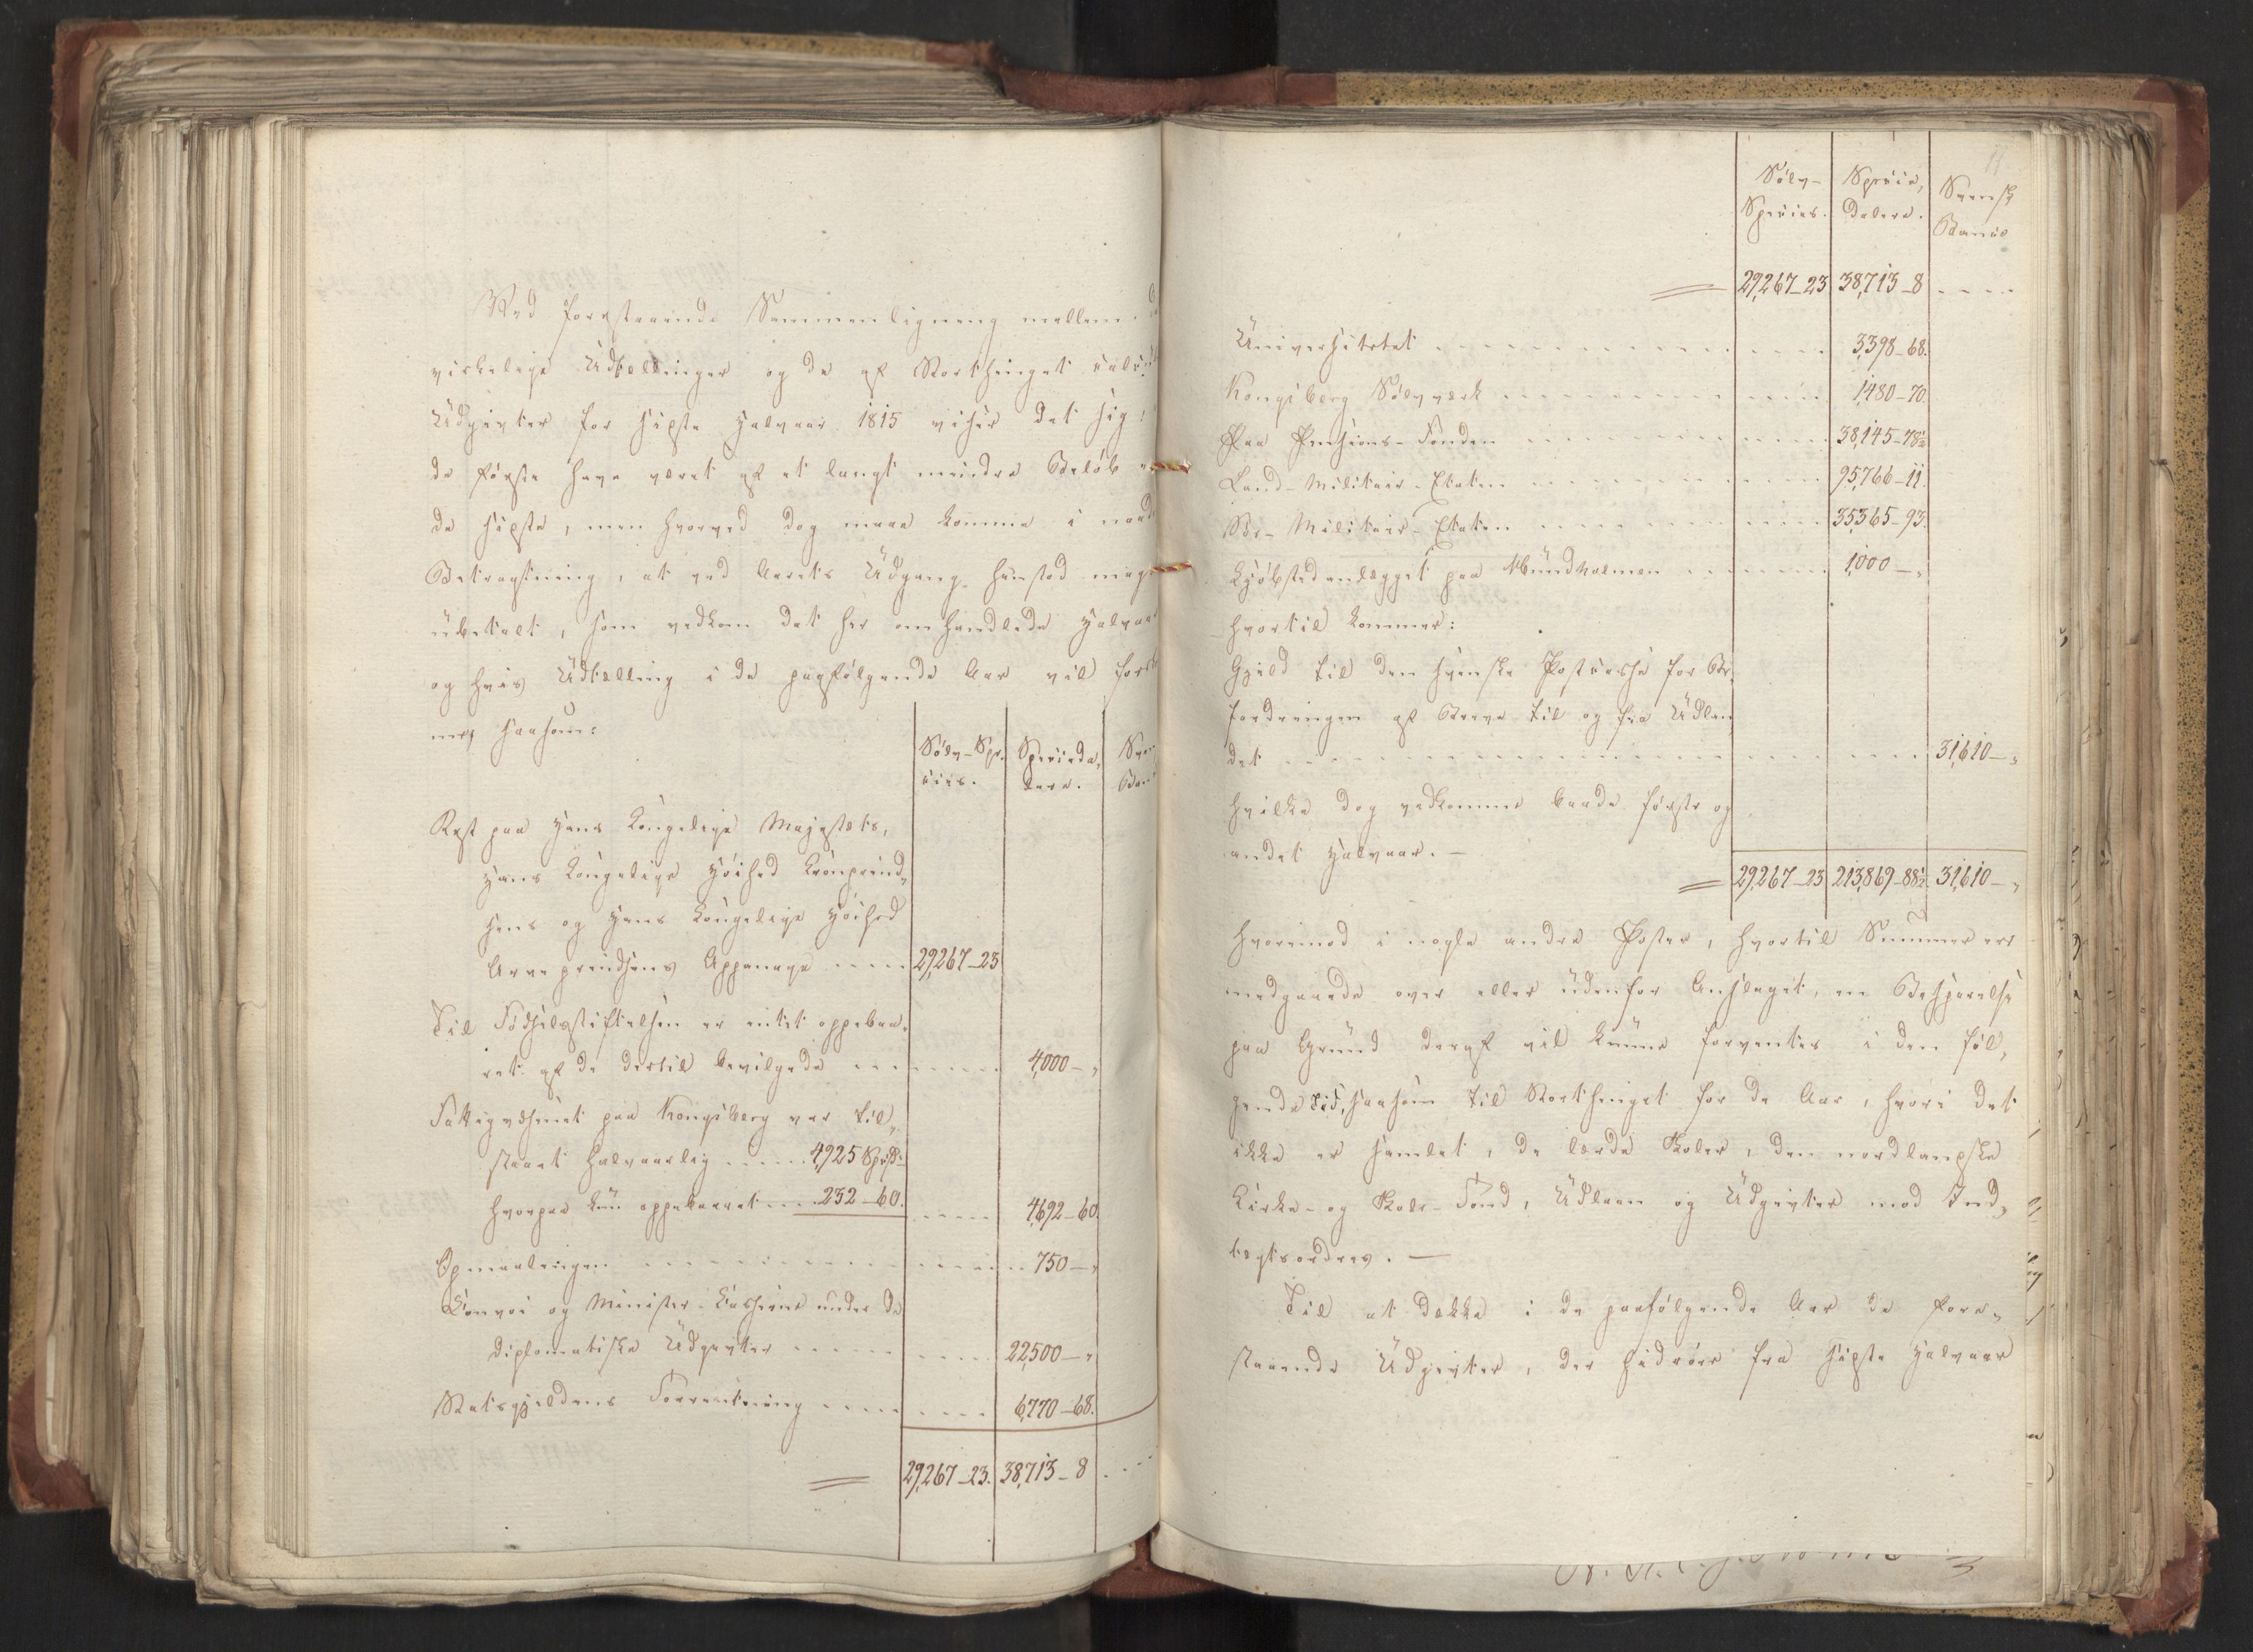 Ved forestaaende Sammenligning mellem
virkelige Udtællinger og de af Storthinget calcü
Üdgivter for sidste Halvaar 1815 viser det sig,
de første have været af et langt mindre Beløb
de sidste, men hvorved dog maae komme i
Betragtning, at ved Aarets Üdgang henstod
übetalt, som vedkom det her omhandlede Halvaar
og hvis Üdtælling i de paafølgende Aar vil
mes saasom:
Sølv-Spe-
cies.
Specieda-
lere.
Rest paa Hans Kongelige Majestæts,
Hans Kongelige Høihed Kronprind-
sens og Hans Kongelige Høihed
Arveprindsens Appanage 29,267-23
Til Fødselsstiftelsen er intet oppebaa-
ret af de dertil bevilgede 4,000-"
Fattigvæsenet paa Kongsberg var til-
staaet halvaarlig 4,925 Spd.
hvorpaa kün oppebaaret 232-60. 4,692-60.
Opmaalingen 750-"
Convoi og Minister-Casserne under de
diplomatiske Üdgivter 22,500-"
Statsgjeldens Forrentning 6,770-68.
29,267-23. 38,713-8
Sølv-
Species.
Specie-
dalere.
Svensk
Banco
29,267-23 38,713-8
Üniversitetet 3,398-68.
Kongsberg Sølvværk 1,480-70.
Paa Pensions-Fonden 38,145-78½
Land-Militair-Etaten 95,766-11.
Søe-Militair-Etaten 35,365-93.
Kjøbstedanlægget paa Mündholmen 1,000-"
hvortil kommer:
Gjeld til den svenske Postcasse for Be-
fordringen af Breve til og fra Üdlan
det 31,610-"
hvilke dog vedkomme baade første og
andet Halvaar.-
29,267-23 213,869-88½ 31,610-"
hvorimod i nogle andre Poster, hvortil Summer ere
medgaaede over eller üdenfor Anslaget, en Besparelse
paa Gründ deraf vil künne forventes i den føl-
gende Tid, saasom til Storthinget for de Aar, hvori det
ikke er samlet, de lærde Skoler, den nordlandske
Kirke- og Skole-Fond, Üdlaan og Üdgivter mod Ind-
tægtsordres.-
Til at dække i de paafølgende Aar de fore-
staaende Üdgivter, der hidrøre fra sidste Halvaar